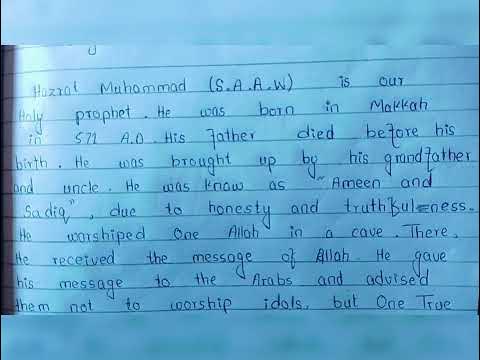 Hazrat Muhammad (S.A.A.W) is our
Holy prophet. He was born in Makkah
in 571 A.D. His father died before his
birth. He was brought up by his grandfather
and uncle. He was know as "Ameen and
Sadiq", due to honesty and truthfulness.
He worshiped One Allah in a cave. There,
He received the message of Allah. He gave
his message to the Arabs and advised
them not to worship idols, but One True